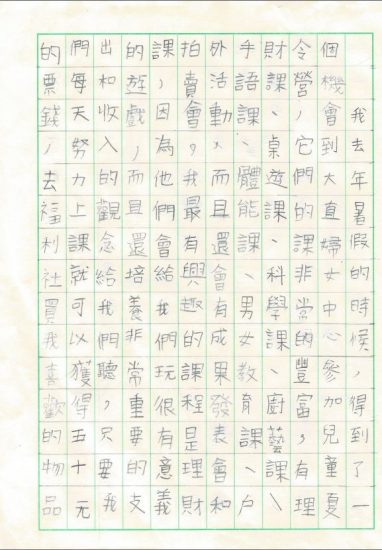 我去年暑假的時候，得到了一
個機會到大直婦女中心參加兒童夏
令營，它們的課非常的豐富，有理
財課、桌遊課、科學課、廚藝課、
手語課、體能課、男女教育課、戶
外活動，而且還會有成果發表會和
拍賣會，我最有興趣的課程是理財
課，因為他們會給我們玩很有意義
的遊戲，而且還培養非常重要的支
出和收入的觀念給我們聽，只要我
們每天努力上課就可以獲得五十元
的票錢，去福利社買我喜歡的物品